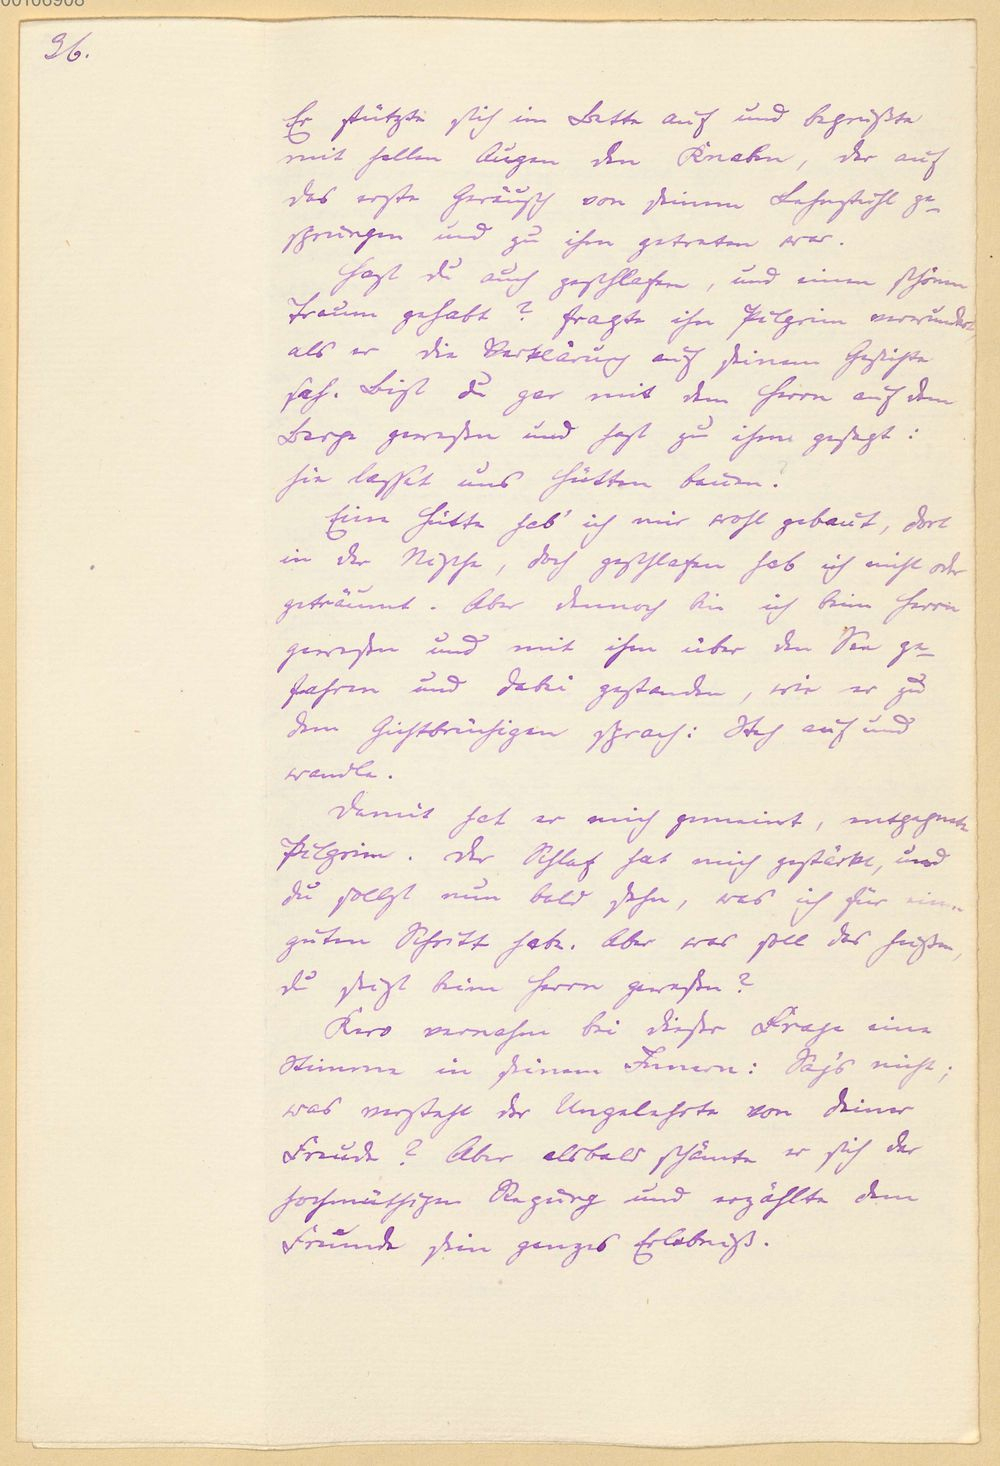 00106908
36.
Er stützte sich im Bette auf und begrüßte
mit hellen Augen den Knaben, der auf
das erste Geräusch von seinem Lehnstuhl ge-
sprungen und zu ihm getreten war.
Hast du auch geschlafen, und einen schönen
Traum gehabt? fragte ihn Pilgrim verwundert,
als er die Verklärung auf seinem Gesichte
sah. Bist du gar mit dem Herrn auf dem
Berge gewesen und hast zu ihm gesagt:
hie lasset uns Hütten bauen?
Eine Hütte hab' ich mir wohl gebaut, dort
in der Nische, doch geschlafen hab ich nicht oder
geträumt. Aber dennoch bin ich beim Herrn
gewesen und mit ihm über den See ge-
fahren und dabei gestanden, wie er zu
dem Gichtbrüchigen sprach: Steh auf und
wandle.
Damit hat er mich gemeint, entgegnete
Pilgrim. Der Schlaf hat mich gestärkt, und
du sollst nun bald sehn, was ich für einen
guten Schritt habe. Aber was soll das heißen,
du seist beim Herrn gewesen?
Kero vernahm bei dieser Frage eine
Stimme in seinem Innern: Sag's nicht;
was versteht der Ungelehrte von deiner
Freude? Aber alsbald schämte er sich der
hochmüthigen Regung und erzählte dem
Freunde sein ganzes Erlebniß.